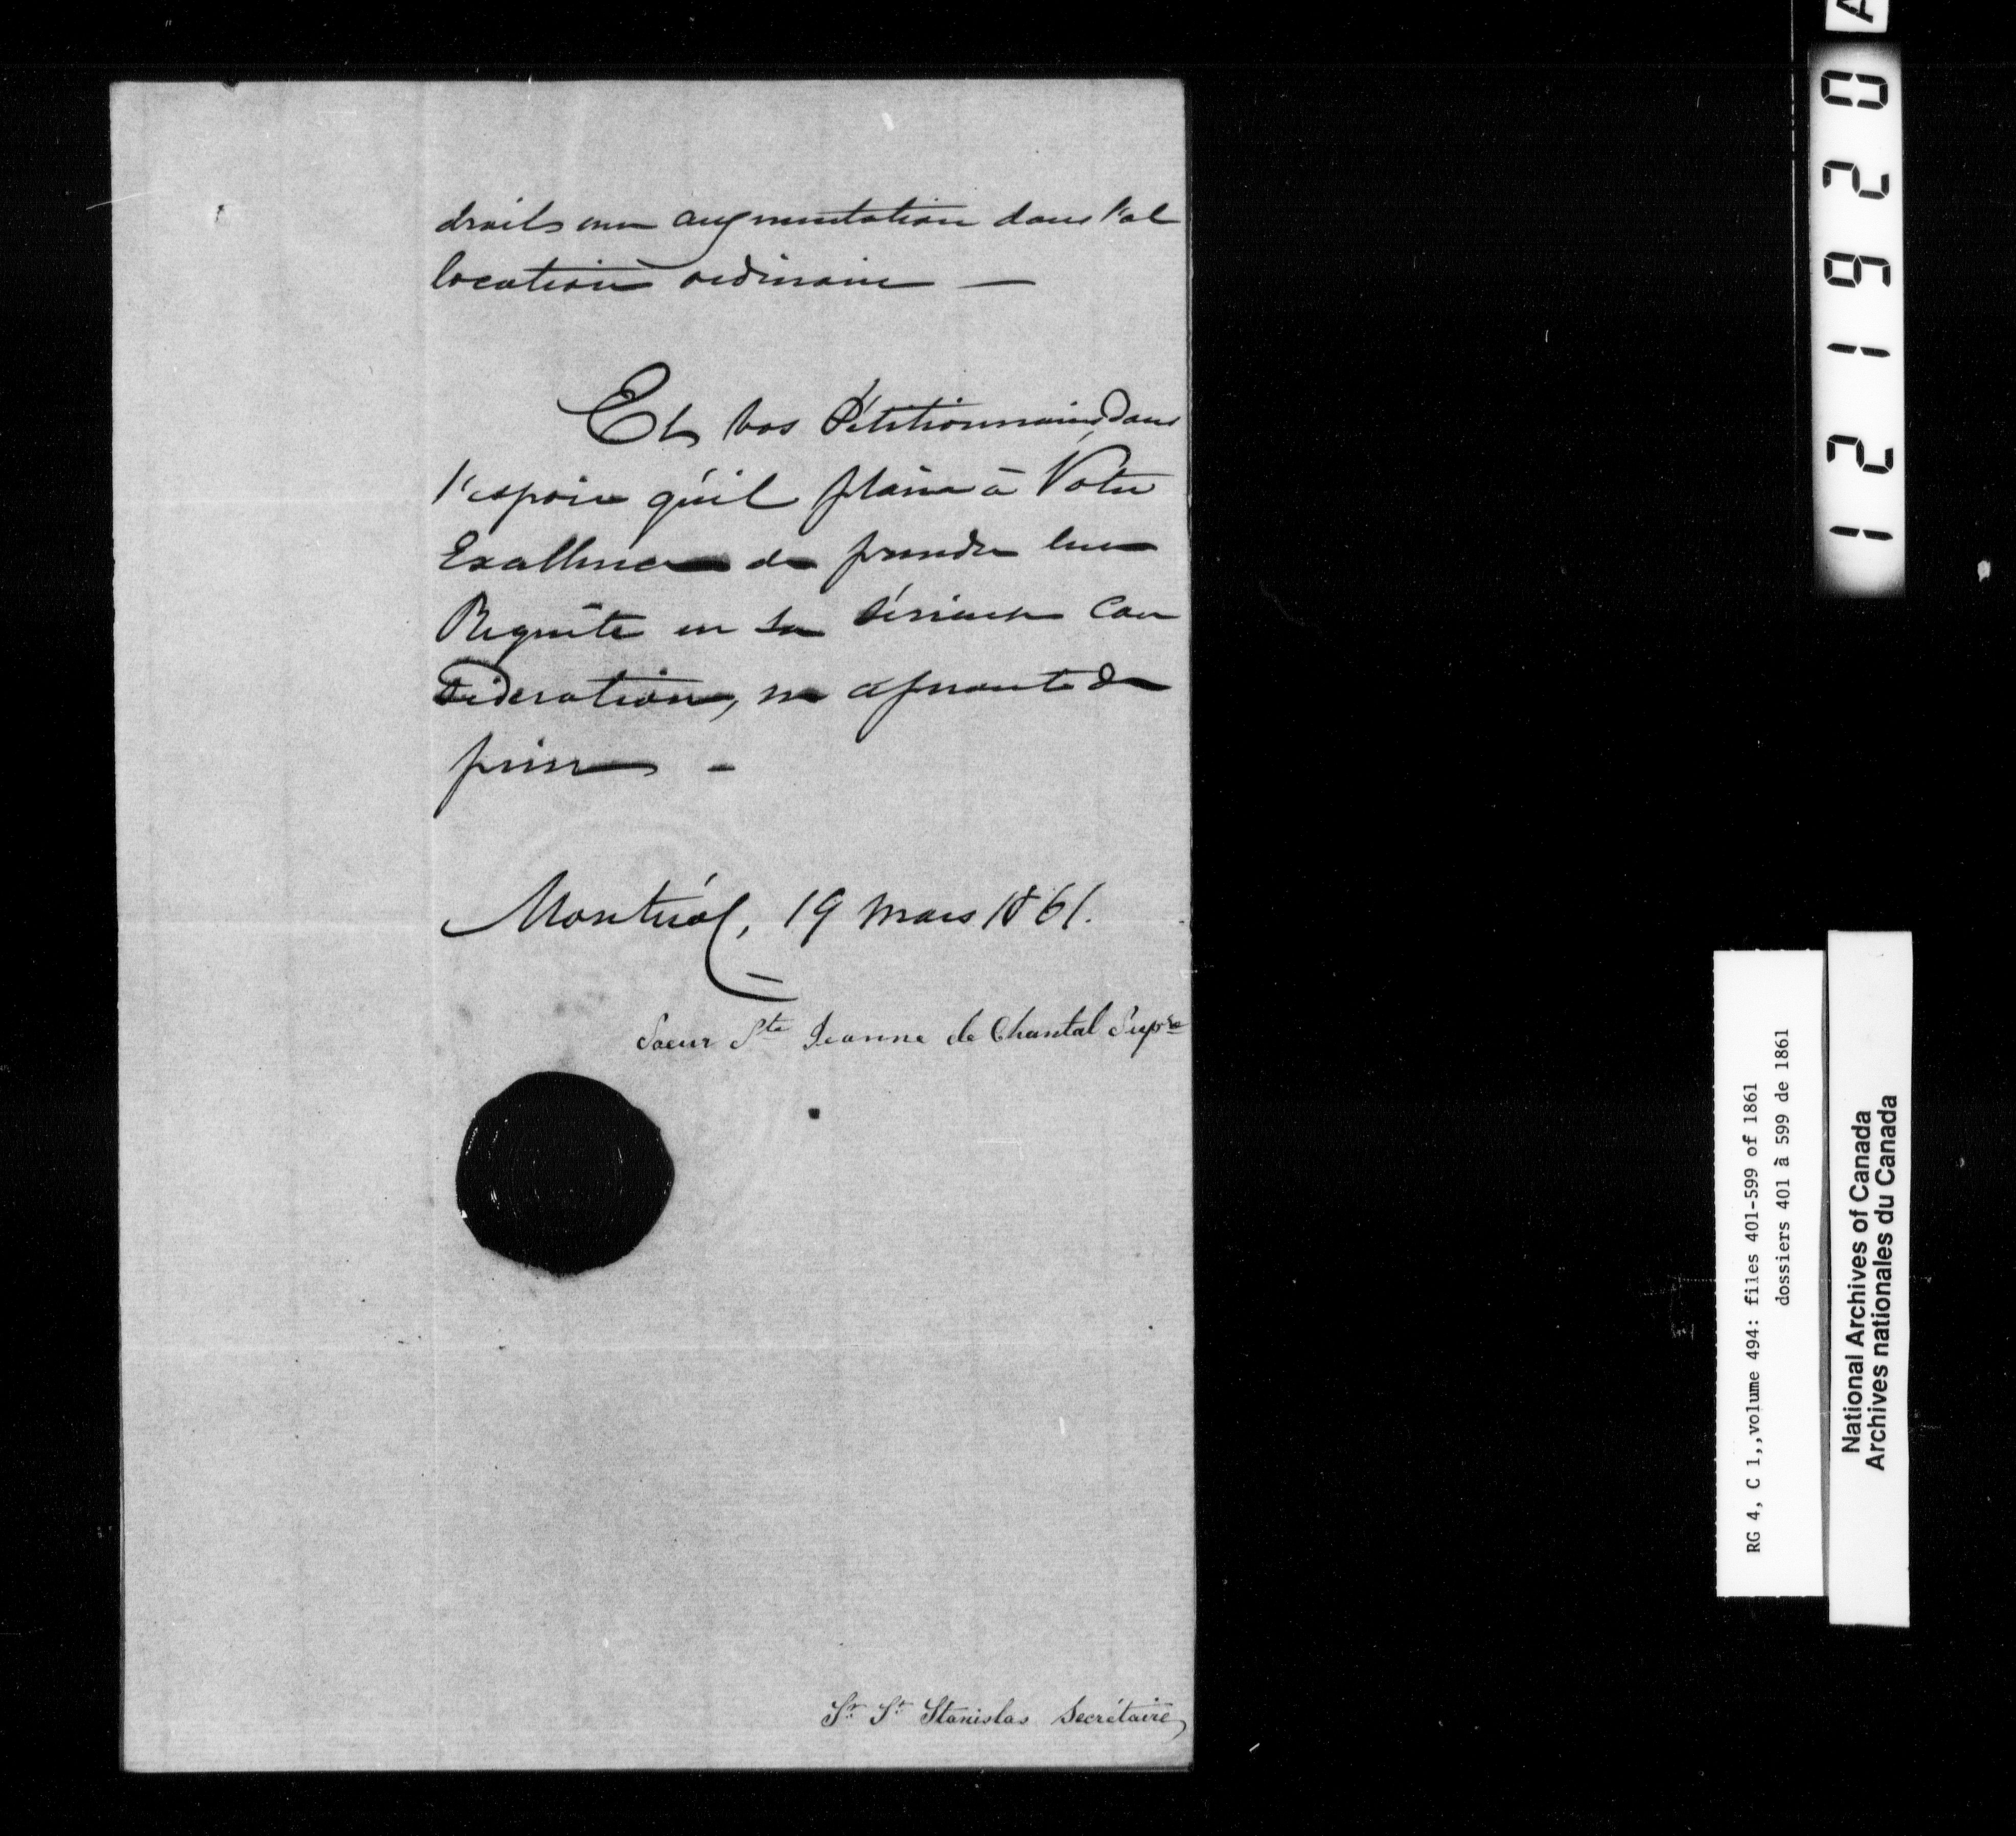 droits une augmentation dans l'al
location ordinaire —
Et vos Pétitionnaires, dans
l'espoir qu'il plaira à Votre
Excellence de prendre leur
Requête en sa sérieuse Con
sidération, ne cesseront de
prier –
Montréal, 19 Mars 1861.
Soeur Ste Jeanne de Chantal Supre
Sr. St. Stanislas Secrétaire
A
121920
RG 4, C 1,,volume 494: files 401-599 of 1861
dossiers 401 à 599 de 1861
National Archives of Canada
Archives nationales du Canada